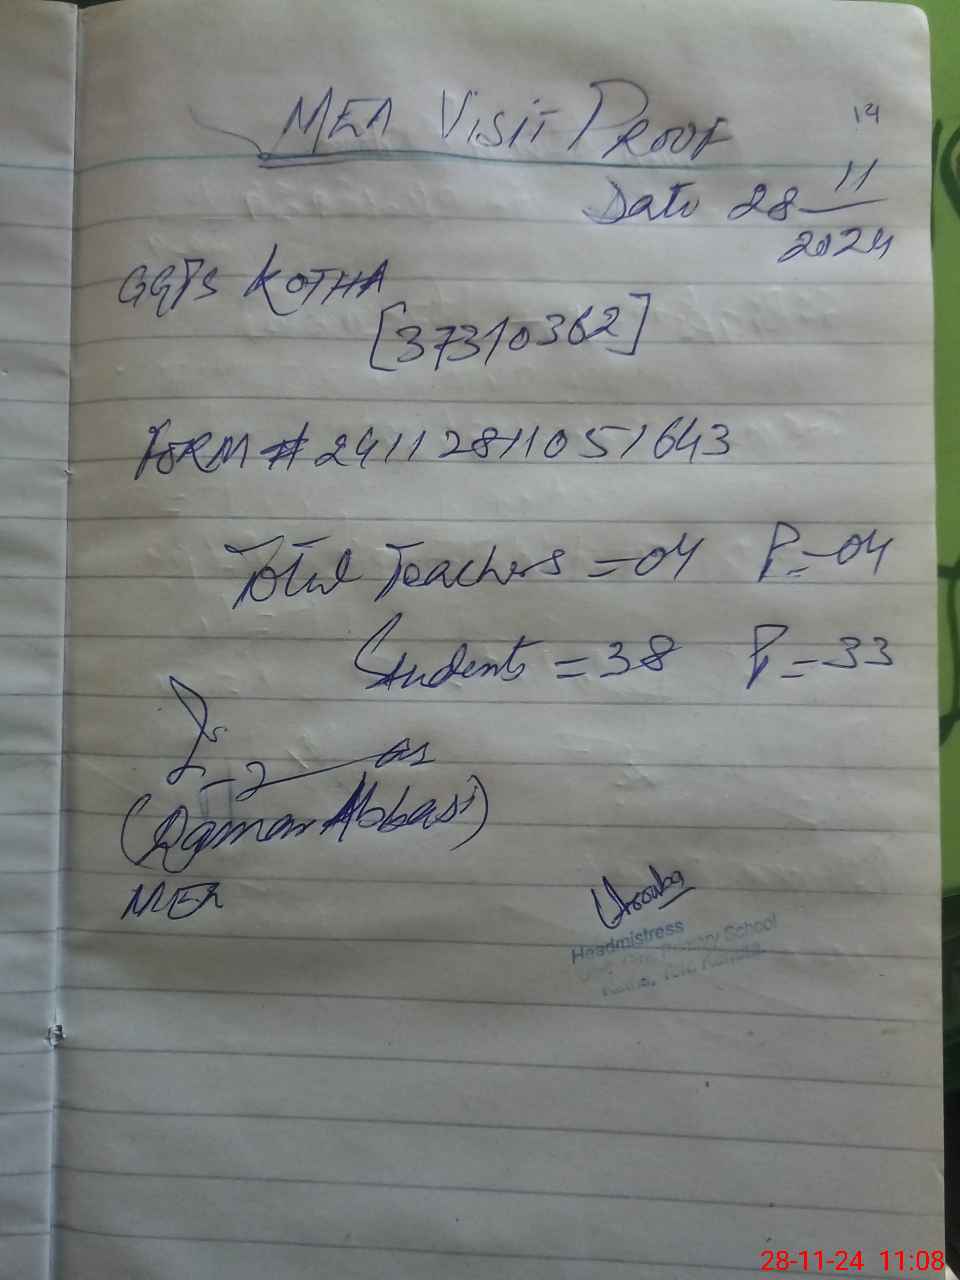 14
MEA Visit Proof
Date 28 11
2024
GGPS KOTHA
[37310362]
FORM # 24112811051643
Total Teachers = 04 P = 04
Students = 38 P = 33
Abbasi)
MEA
Headmistress
Primary School
28-11-24 11:08